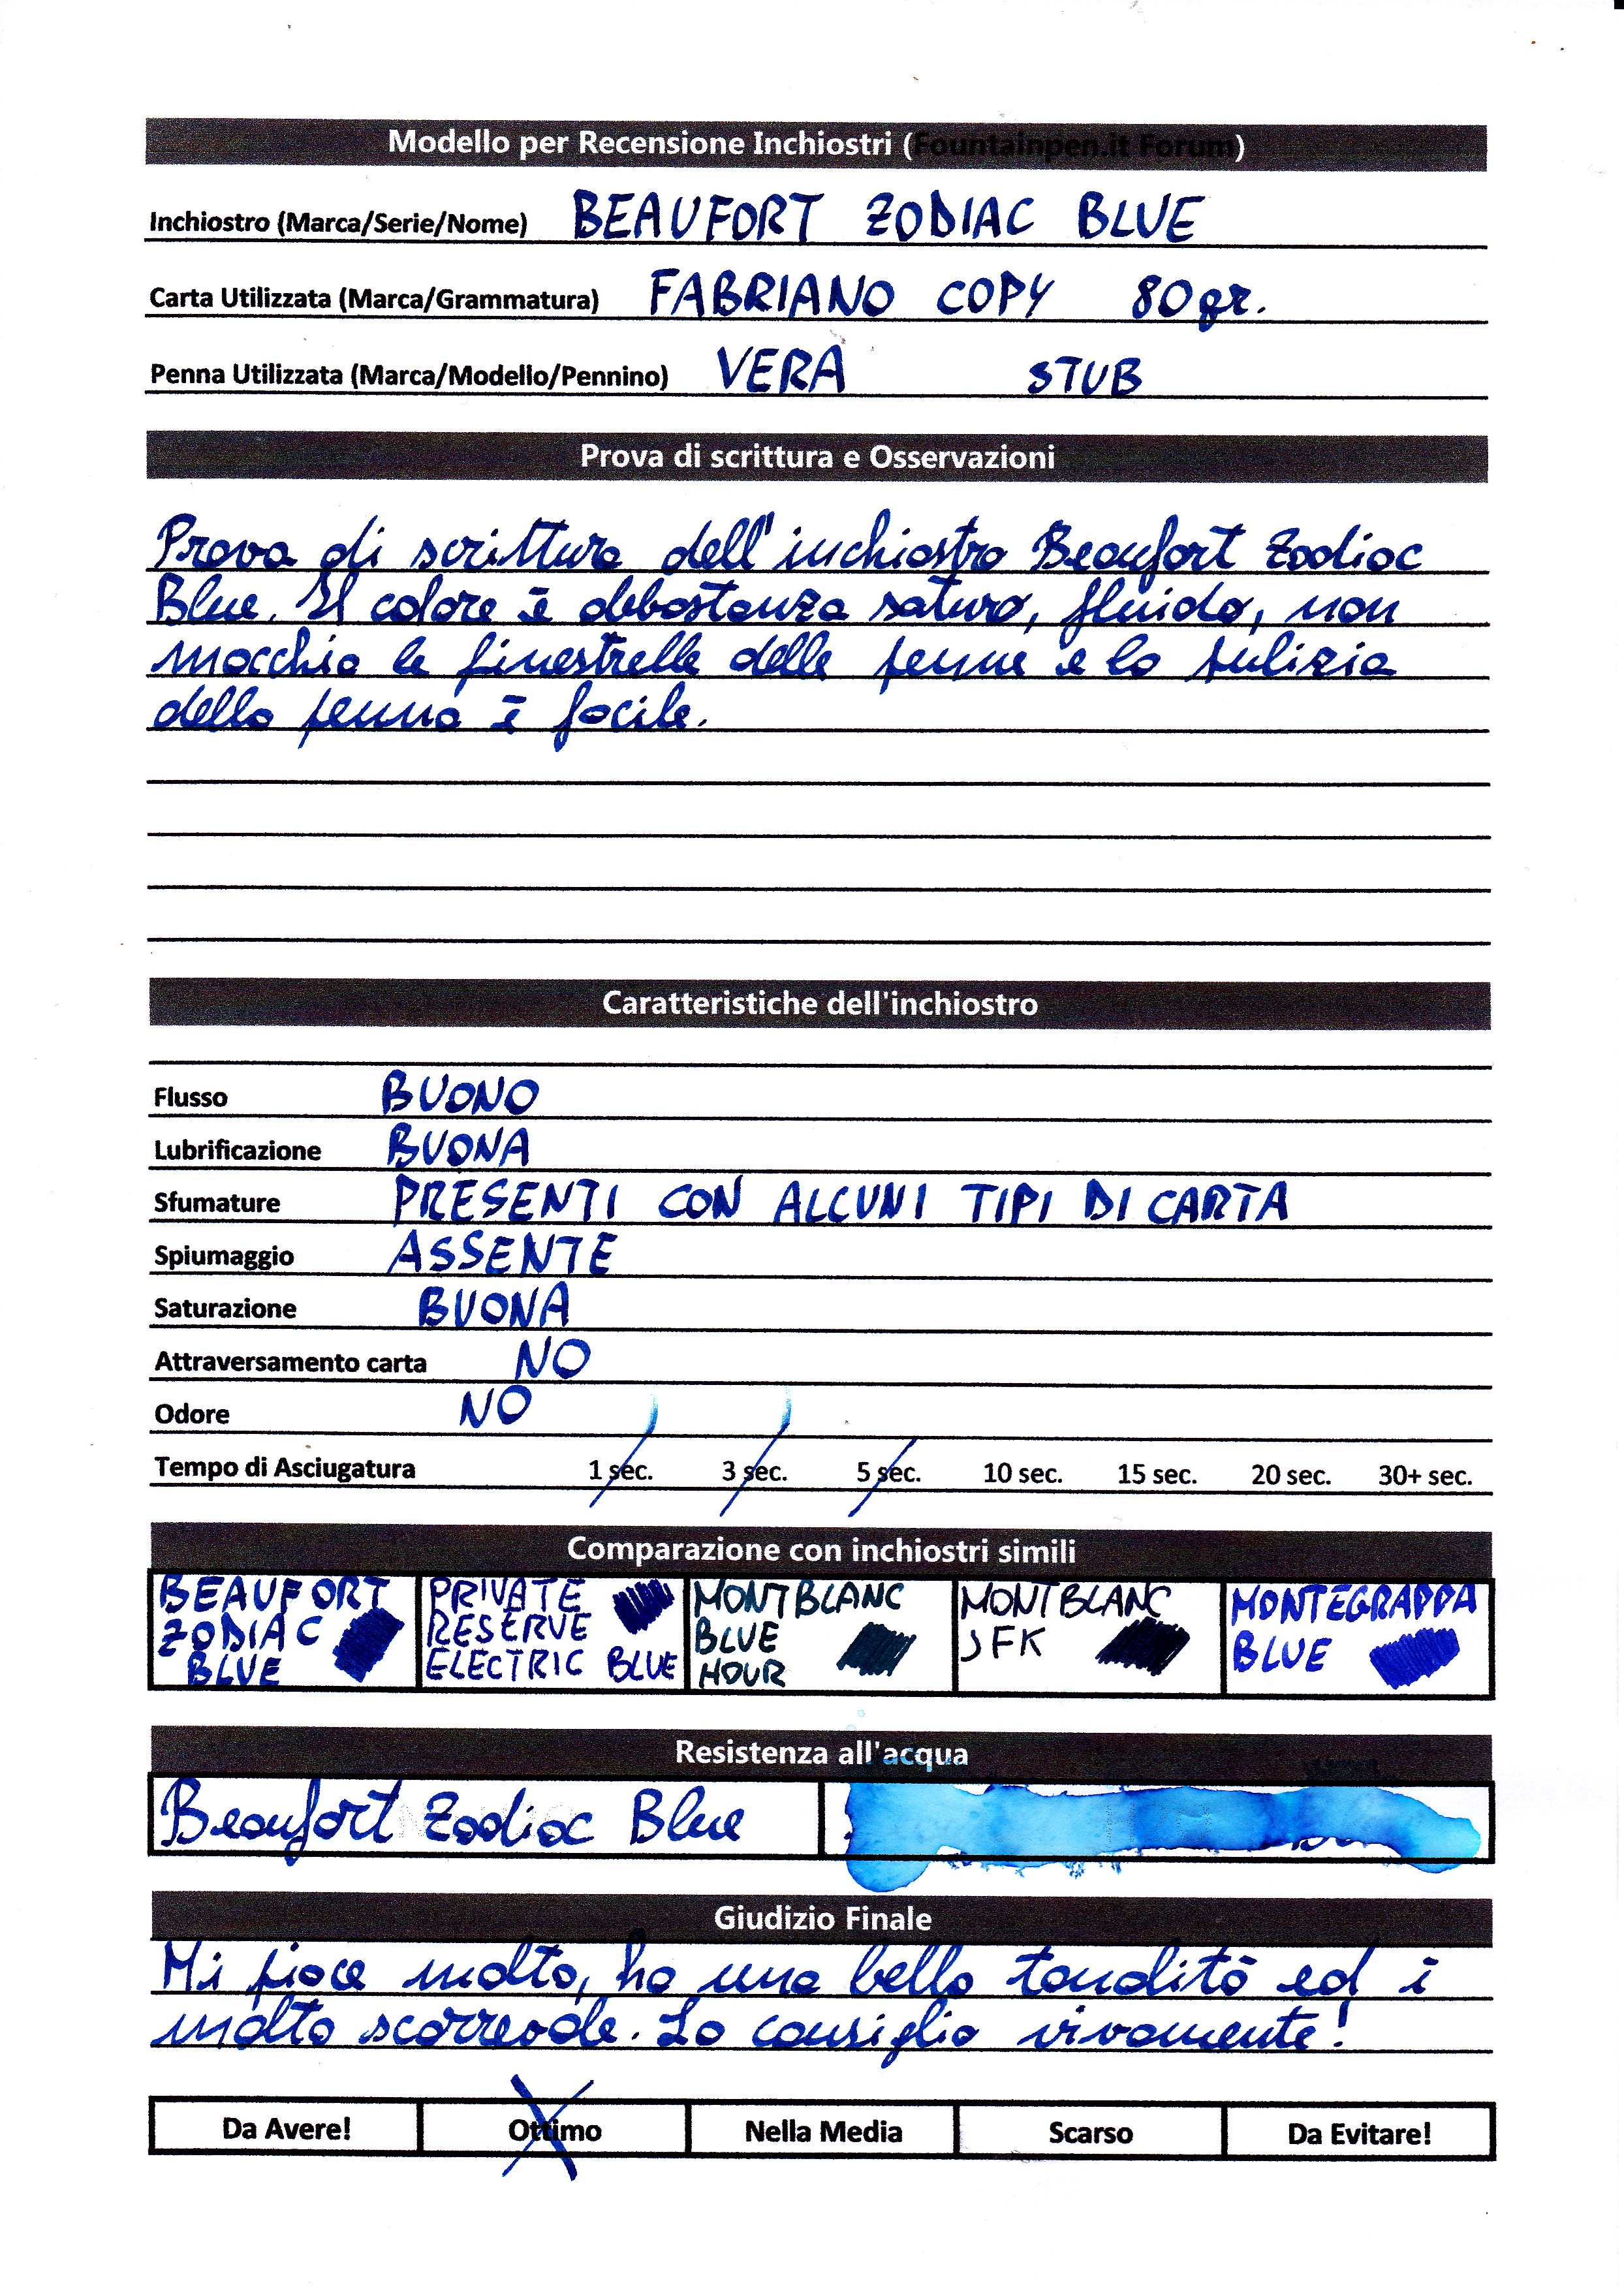 Modello per Recensione Inchiostri (Fountainpen.it Forum)
Inchiostro (Marca/Serie/Nome) BEAUFORT ZODIAC BLUE
Carta Utilizzata (Marca/Grammatura) FABRIANO COPY 80gr.
Penna Utilizzata (Marca/Modello/Pennino) VERA STUB
Prova di scrittura e Osservazioni
Prova di scrittura dell'inchiostro Beaufort Zodiac
Blue. Il colore è abbastanza saturo, fluido, non
macchia le finestrelle delle penne e la pulizia
della penna è facile.
Caratteristiche dell'inchiostro
Flusso BUONO
Lubrificazione BUONA
Sfumature PRESENTI CON ALCUNI TIPI DI CARTA
Spiumaggio ASSENTE
Saturazione BUONA
Attraversamento carta NO
Odore NO
Tempo di Asciugatura 1 sec. 3 sec. 5 sec. 10 sec. 15 sec. 20 sec. 30+ sec.
Comparazione con inchiostri simili
BEAUFORT ZODIAC BLUE
PRIVATE RESERVE ELECTRIC BLUE
MONTBLANC BLUE HOUR
MONTBLANC JFK
MONTEGRAPPA BLUE
Resistenza all'acqua
Beaufort Zodiac Blue
Giudizio Finale
Mi piace molto, ha una bella tonalità ed è
molto scorrevole. Lo consiglio vivamente!
Da Avere! Ottimo Nella Media Scarso Da Evitare!